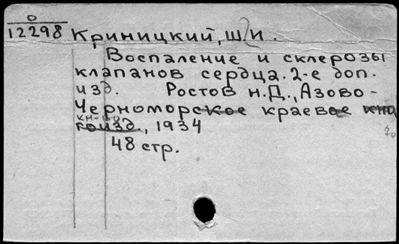 0
12298
Криницкий, Ш.И.
Воспаление и склерозы
клапанов сердца. 2-е доп.
изд. Ростов н.Д., Азово-
Черноморское краевое кно
гоизд., 1934
48 стр.